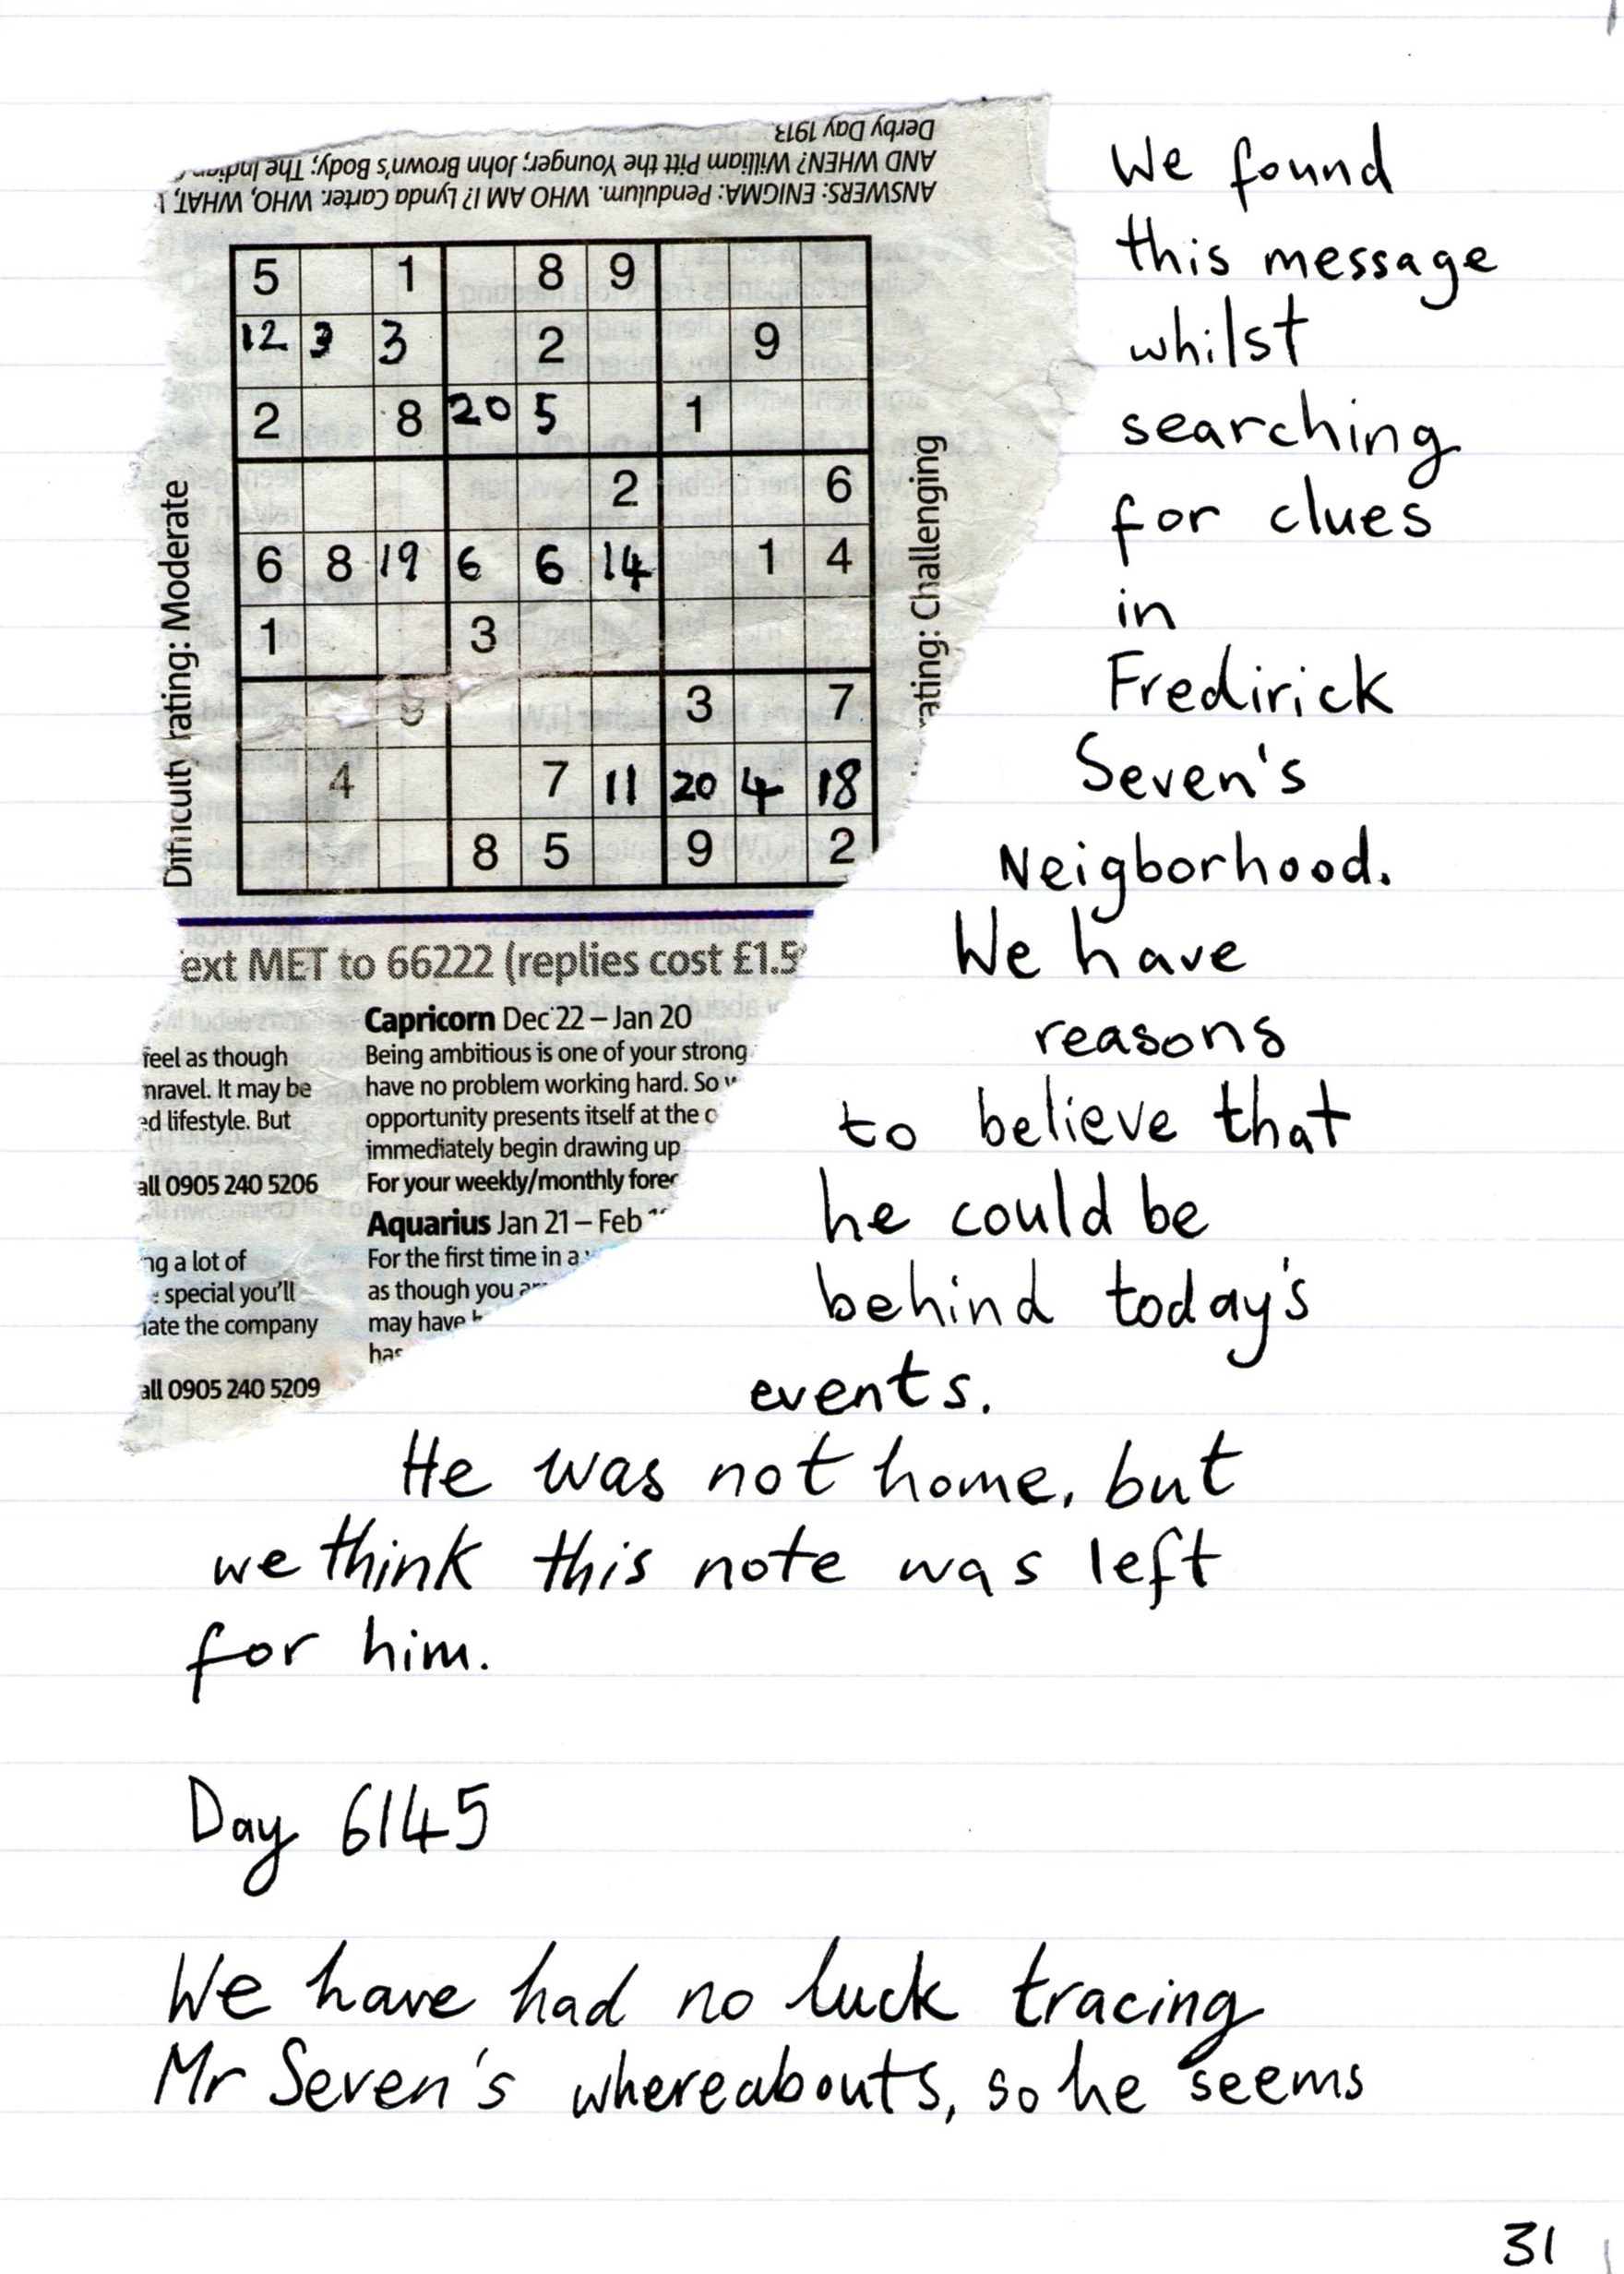 Derby Day 1913.
AND WHEN? William Pitt the Younger; John Brown's Body; The
ANSWERS: ENIGMA: Pendulum. WHO AM I? Lynda Carter. WHO, WHAT,
5 1 8 9
12 3 3 2 9
2 8 20 5 1
2 6
6 8 19 6 6 14 1 4
1 3
3 7
4 7 11 20 4 18
8 5 9 2
Difficulty rating: Moderate
rating: Challenging
ext MET to 66222 (replies cost £1.5
feel as though
nravel. It may be
ed lifestyle. But
all 0905 240 5206
ng a lot of
special you'll
iate the company
all 0905 240 5209
Capricorn Dec 22 – Jan 20
Being ambitious is one of your strong
have no problem working hard. So
opportunity presents itself at the
immediately begin drawing up
For your weekly/monthly forec
Aquarius Jan 21 – Feb
For the first time in a
as though you
may have
has
We found
this message
whilst
searching
for clues
in
Fredirick
Seven's
Neigborhood.
We have
reasons
to believe that
he could be
behind today's
events.
He was not home, but
we think this note was left
for him.
Day 6145
We have had no luck tracing
Mr Seven's whereabouts, so he seems
31